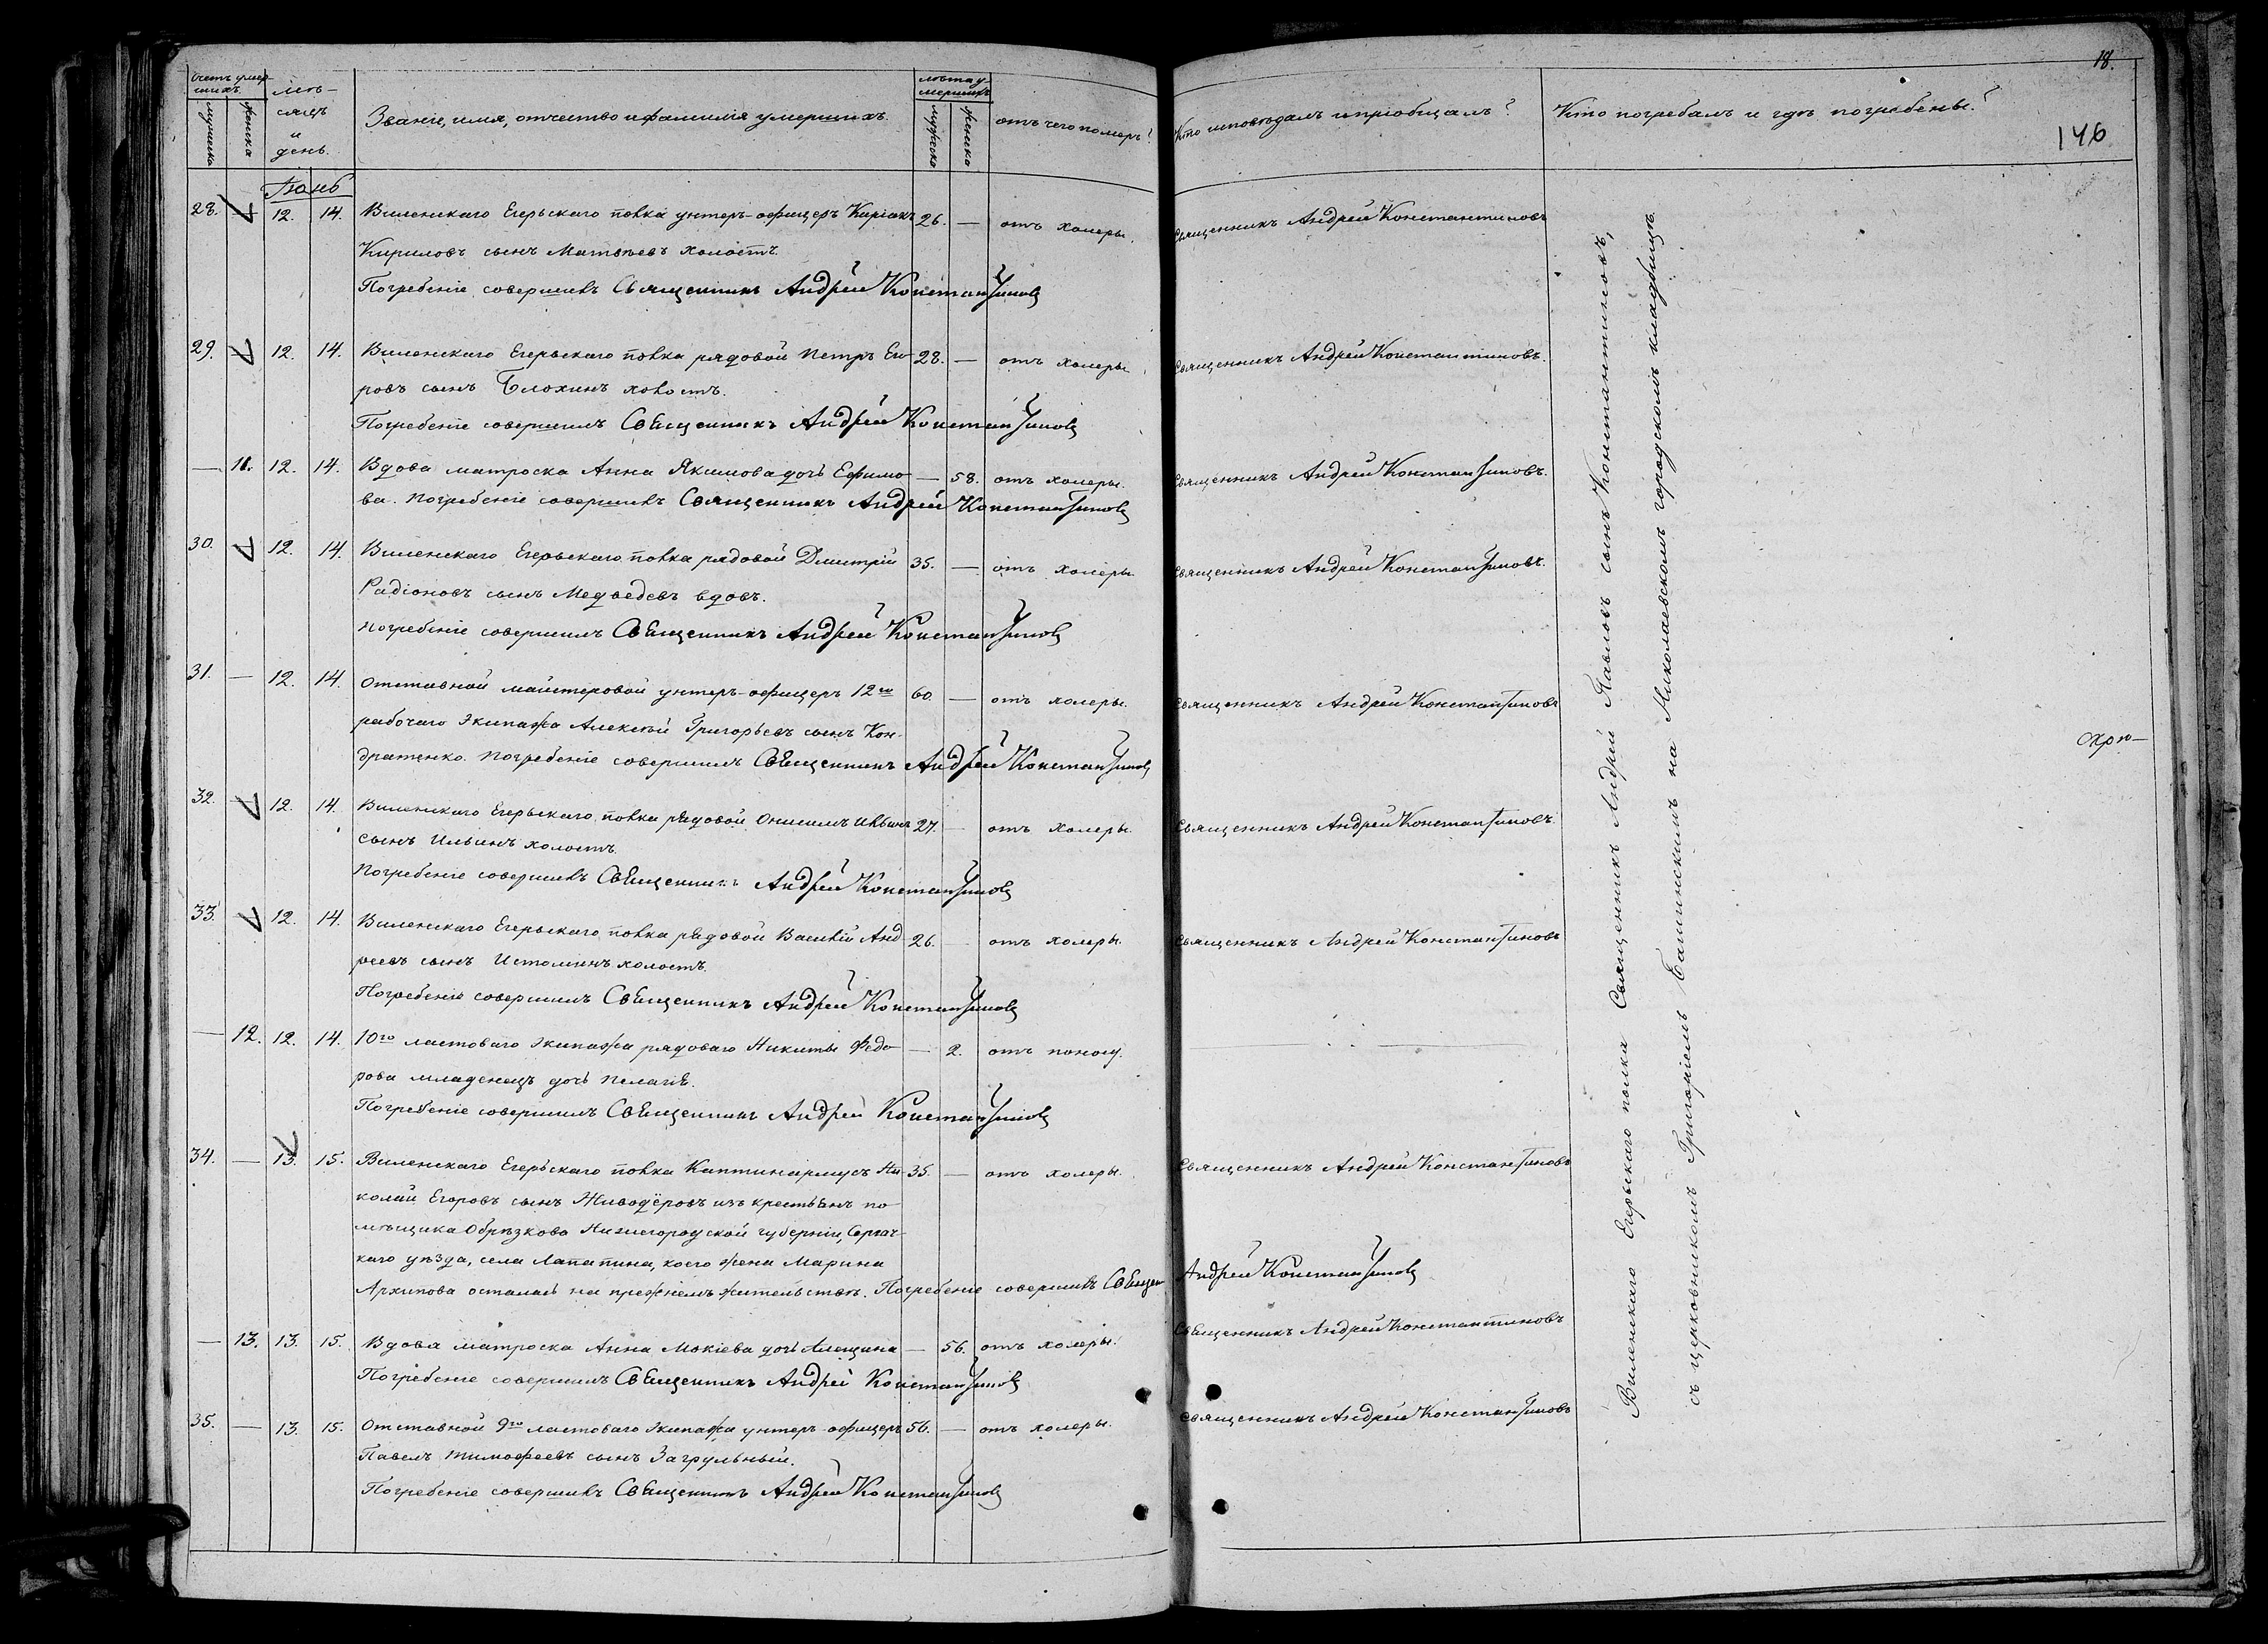 18.
146
счетъ умер-
шихъ.
мужеска
женска
мѣ-
сяцъ
и
день.
Званіе, имя, отчество и фамилія умершихъ.
лѣта у-
мершихъ
мужеска
женска
отъ чего померъ?
Кто исповѣдалъ и пріобщалъ?
Кто погребалъ и гдѣ погребены?
Іюнь
28. — 12. 14. Виленскаго Егерьскаго полка унтеръ-офицеръ Киріакъ 26. — отъ холеры. Священникъ Андрей Константиновъ
Кириловъ сынъ Матвѣевъ холостъ.
Погребеніе совершилъ Священникъ Андрей Константиновъ
29. — 12. 14. Виленскаго Егерьскаго полка рядовой Петръ Его- 28. — отъ холеры. Священникъ Андрей Константиновъ.
ровъ сынъ Блохинъ холостъ.
Погребеніе совершилъ Священникъ Андрей Константиновъ
— 11. 12. 14. Вдова матроска Анна Якимова дочь Ефимо- — 58. отъ холеры. Священникъ Андрей Константиновъ.
ва. Погребеніе совершилъ Священникъ Андрей Константиновъ
30. — 12. 14. Виленскаго Егерьскаго полка рядовой Дмитрій 35. — отъ холеры. Священникъ Андрей Константиновъ.
Радіоновъ сынъ Медведевъ вдовъ.
Погребеніе совершилъ Священникъ Андрей Константиновъ
31. — 12. 14. Отставной майстеровой унтеръ-офицеръ 12го 60. — отъ холеры. Священникъ Андрей Константиновъ
рабочаго экипажа Алексѣй Григорьевъ сынъ Кон-
дратенко. Погребеніе совершилъ Священникъ Андрей Константиновъ
32. — 12. 14. Виленскаго Егерьскаго полка рядовой Онисимъ Ильинъ 27. — отъ холеры. Священникъ Андрей Константиновъ.
сынъ Ильинъ холостъ.
Погребеніе совершилъ Священникъ Андрей Константиновъ
33. — 12. 14. Виленскаго Егерьскаго полка рядовой Василій Анд 26. — отъ холеры. Священникъ Андрей Константиновъ
реевъ сынъ Истоминъ холостъ.
Погребеніе совершилъ Священникъ Андрей Константиновъ
— 12. 12. 14. 10го ластоваго экипажа рядоваго Никиты Федо- — 2. отъ поносу. —
рова младенецъ дочь Пелагія.
Погребеніе совершилъ Священникъ Андрей Константиновъ
34. — 13. 15. Виленскаго Егерьскаго полка Каптинармусъ Ни- 35. — отъ холеры. Священникъ Андрей Константиновъ
колай Егоровъ сынъ Живодёровъ изъ крестьянъ по-
мѣщика Обрѣзкова Нижегородской губерніи, Сергач-
каго уѣзда, села Лапатина, коего жена Марина
Архипова осталась на прежнемъ жительствѣ. Погребеніе совершилъ Священ Андрей Константиновъ
— 13. 13. 15. Вдова матроска Анна Мокіева дочь Алещина — 56. отъ холеры. Священникъ Андрей Константиновъ
Погребеніе совершилъ Священникъ Андрей Константиновъ
35. — 13. 15. Отставной 9го ластоваго экипажа унтеръ-офицеръ 56. — отъ холеры. Священникъ Андрей Константиновъ
Павелъ Тимофеевъ сынъ Загрульный.
Погребеніе совершилъ Священникъ Андрей Константиновъ
Виленскаго Егерьскаго полка Священникъ Андрей Павловъ сынъ Константиновъ,
съ церковникомъ Григоріемъ Балинскимъ на Николаевскомъ городскомъ кладбищѣ.